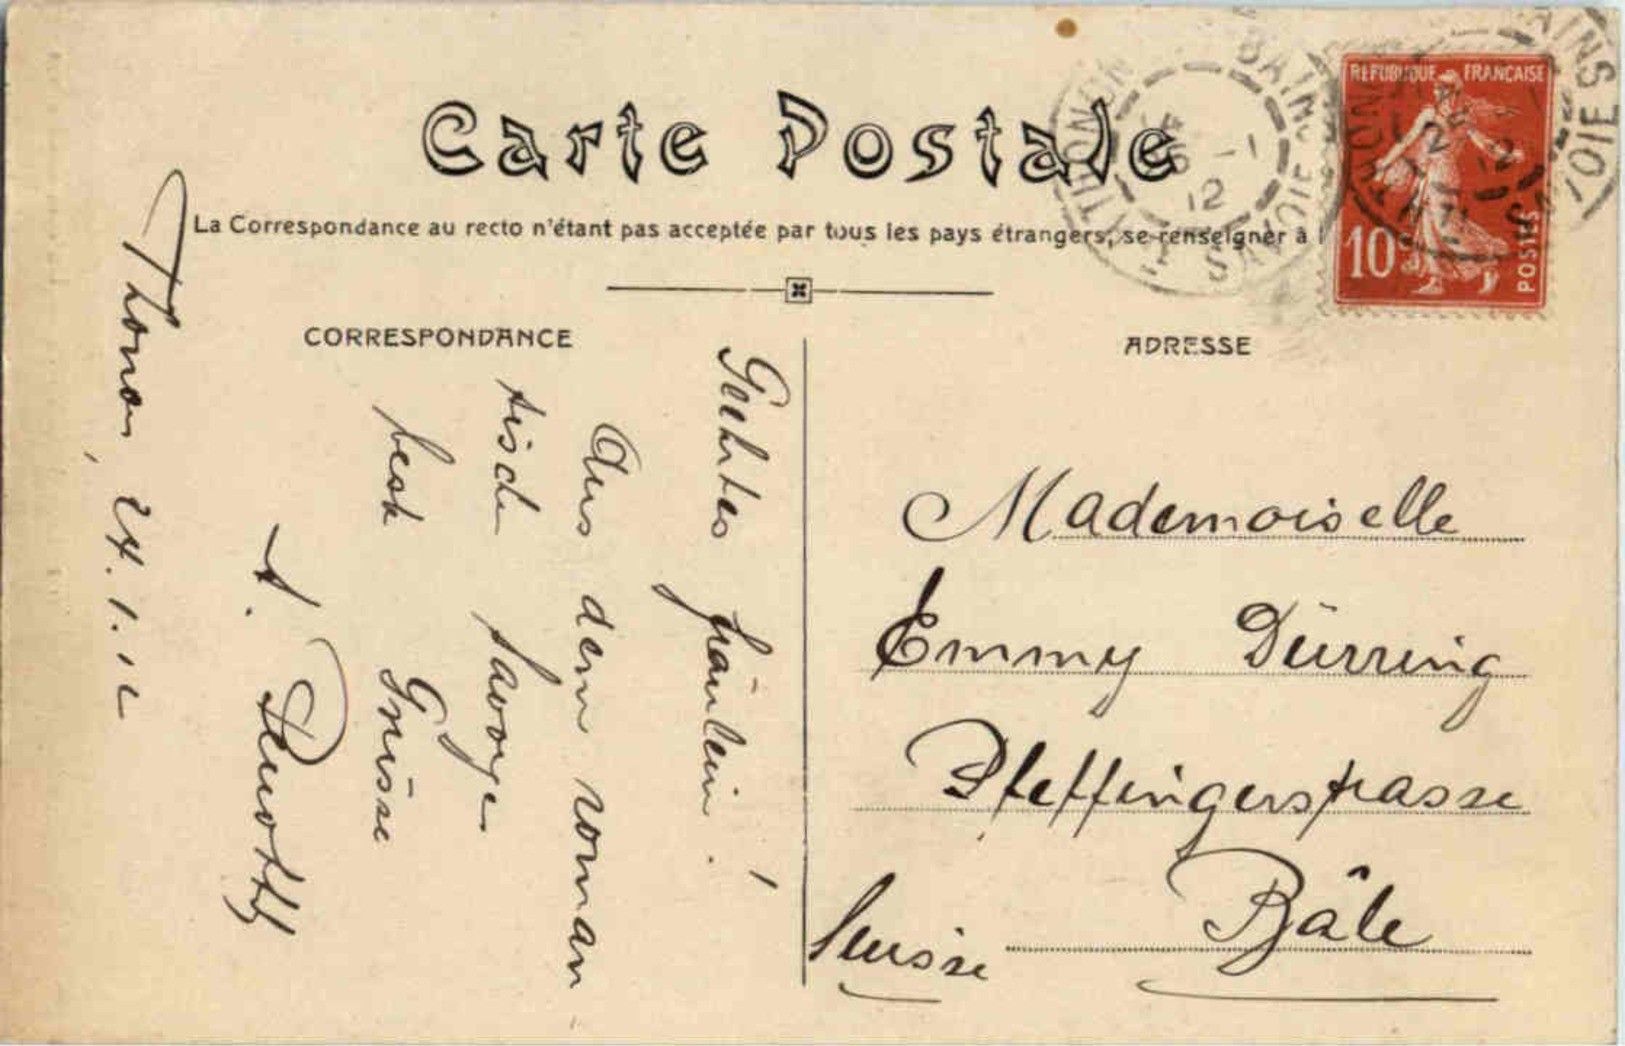 Carte Postale
La Correspondance au recto n'étant pas acceptée par tous les pays étrangers, se renseigner à
CORRESPONDANCE
ADRESSE
REPUBLIQUE FRANÇAISE
10
POSTES
THONON BAINS
-1
12
SAVOIE
Thonon, 24.1.12
Geehrtes Fräulein!
Aus dem roman
tisch Savoye
best Grüsse
Mademoiselle
Emmy Dürring
Pfeffingerstrasse
Bâle
Suisse